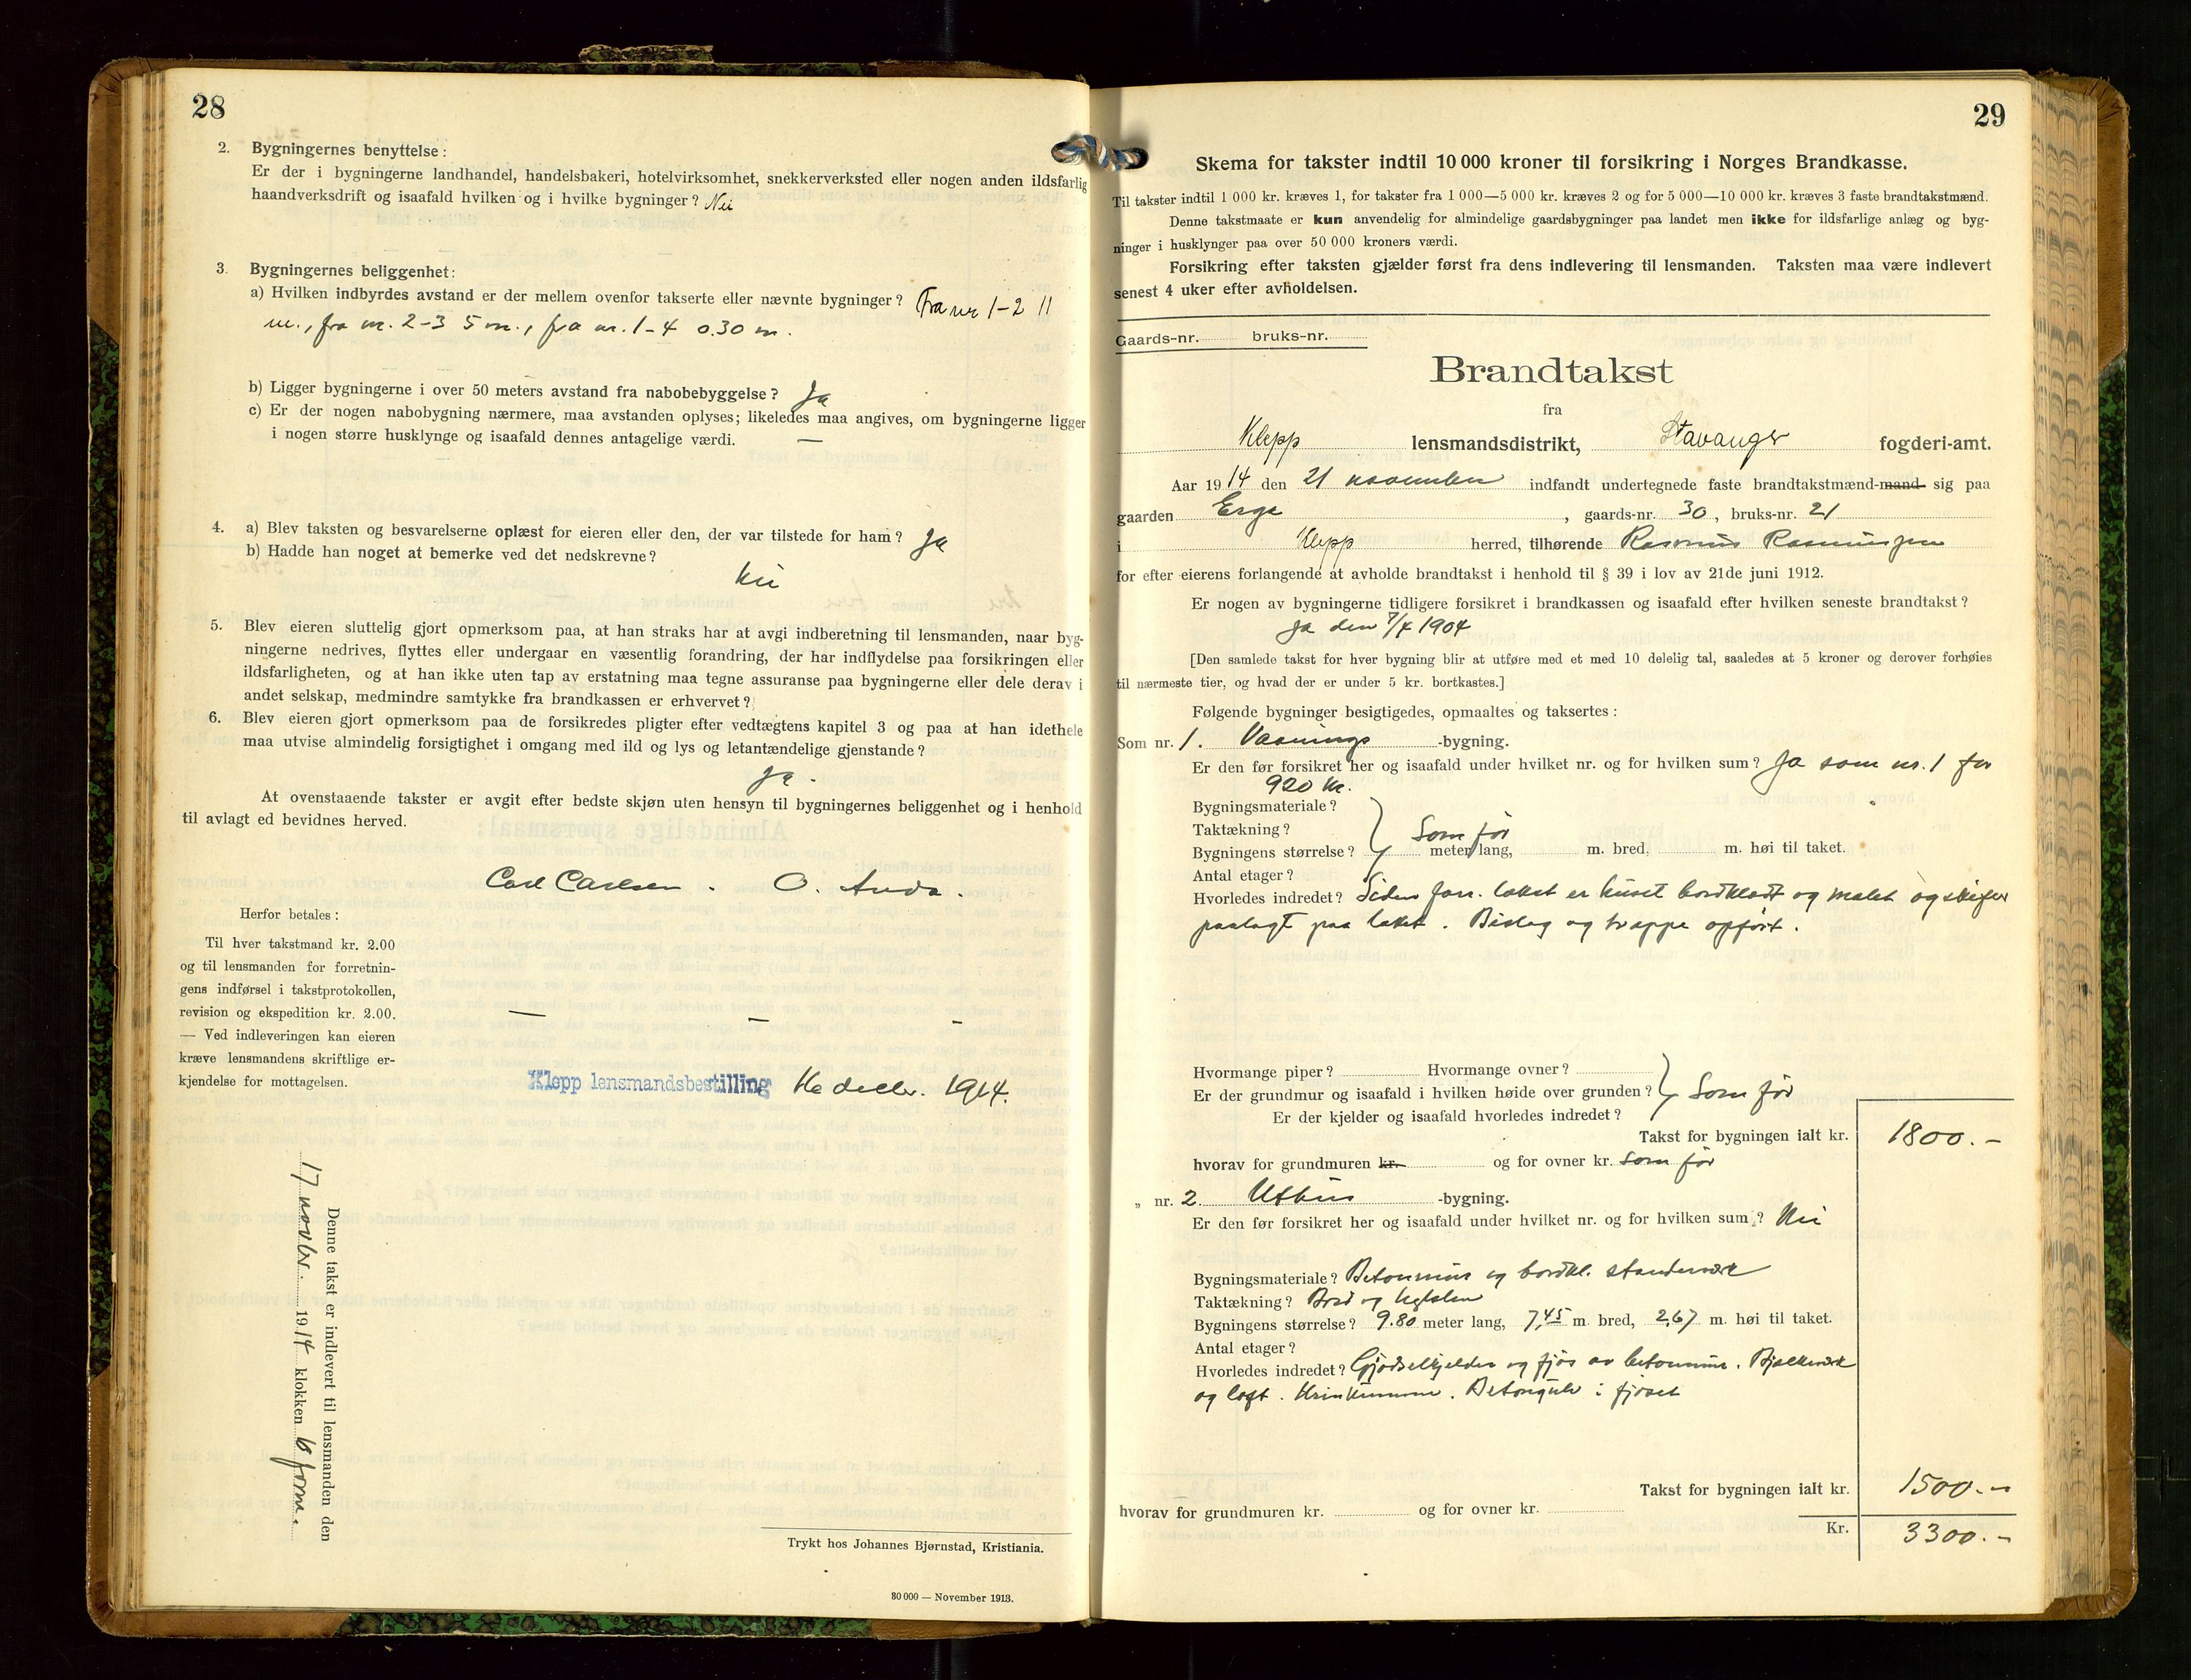 28
2. Bygningernes benyttelse:
Er der i bygningerne landhandel, handelsbakeri, hotelvirksomhet, snekkerverksted eller nogen anden ildsfarlig
haandverksdrift og isaafald hvilken og i hvilke bygninger? Nei
3. Bygningernes beliggenhet:
a) Hvilken indbyrdes avstand er der mellem ovenfor takserte eller nævnte bygninger? Fra nr 1-2 11
m., fra nr. 2-3 5 m., fra nr. 1-4 0.30 m.
b) Ligger bygningerne i over 50 meters avstand fra nabobebyggelse? Ja
c) Er der nogen nabobygning nærmere, maa avstanden oplyses; likeledes maa angives, om bygningerne ligger
i nogen større husklynge og isaafald dennes antagelige værdi. —
4. a) Blev taksten og besvarelserne oplæst for eieren eller den, der var tilstede for ham? Ja
b) Hadde han noget at bemerke ved det nedskrevne?
Nei
5. Blev eieren sluttelig gjort opmerksom paa, at han straks har at avgi indberetning til lensmanden, naar byg-
ningerne nedrives, flyttes eller undergaar en væsentlig forandring, der har indflydelse paa forsikringen eller
ildsfarligheten, og at han ikke uten tap av erstatning maa tegne assuranse paa bygningerne eller dele derav i
andet selskap, medmindre samtykke fra brandkassen er erhvervet?
6. Blev eieren gjort opmerksom paa de forsikredes pligter efter vedtægtens kapitel 3 og paa at han idethele
maa utvise almindelig forsigtighet i omgang med ild og lys og letantændelige gjenstande?
Ja.
At ovenstaaende takster er avgit efter bedste skjøn uten hensyn til bygningernes beliggenhet og i henhold
til avlagt ed bevidnes herved.
Carl Carlsen. O. Anda.
Herfor betales:
Til hver takstmand kr. 2.00
og til lensmanden for forretnin-
gens indførsel i takstprotokollen,
revision og ekspedition kr. 2.00.
— Ved indleveringen kan eieren
kræve lensmandens skriftlige er-
kjendelse for mottagelsen.
— — -
Klepp lensmandsbestilling decbr. 1914.
Denne takst er indlevert til lensmanden den
17 novbr. 1914 klokken form.
Trykt hos Johannes Bjørnstad, Kristiania.
30 000 — November 1913.
29
Skema for takster indtil 10 000 kroner til forsikring i Norges Brandkasse.
Til takster indtil 1 000 kr. kræves 1, for takster fra 1 000—5 000 kr. kræves 2 og for 5 000—10 000 kr. kræves 3 faste brandtakstmænd.
Denne takstmaate er kun anvendelig for almindelige gaardsbygninger paa landet men ikke for ildsfarlige anlæg og byg-
ninger i husklynger paa over 50 000 kroners værdi.
Forsikring efter taksten gjælder først fra dens indlevering til lensmanden. Taksten maa være indlevert
senest 4 uker efter avholdelsen.
Gaards-nr. bruks-nr.
Brandtakst
fra
Klepp lensmandsdistrikt, Stavanger fogderi-amt.
Aar 1914 den 21 november indfandt undertegnede faste brandtakstmænd-mand sig paa
gaarden Erga, gaards-nr. 30, bruks-nr. 21
i Klepp herred, tilhørende Rasmus Rasmussen
for efter eierens forlangende at avholde brandtakst i henhold til § 39 i lov av 21de juni 1912.
Er nogen av bygningerne tidligere forsikret i brandkassen og isaafald efter hvilken seneste brandtakst?
Ja den 7/4 1904
[Den samlede takst for hver bygning blir at utføre med et med 10 delelig tal, saaledes at 5 kroner og derover forhøies
til nærmeste tier, og hvad der er under 5 kr. bortkastes.]
Følgende bygninger besigtigedes, opmaaltes og taksertes:
Som nr. 1. Vaanings-bygning.
Er den før forsikret her og isaafald under hvilket nr. og for hvilken sum? Ja som nr. 1 for
920 kr.
Bygningsmateriale?
Taktækning? Som før
Bygningens størrelse? meter lang, m. bred, m. høi til taket.
Antal etager?
Hvorledes indredet? Siden forr. takst er huset bordklædt og malet og skifer
paalagt paa taket. Bislag og trappe opført.
Hvormange piper? Hvormange ovner?
Er der grundmur og isaafald i hvilken høide over grunden? Som før
Er der kjelder og isaafald hvorledes indredet?
Takst for bygningen ialt kr. 1800.-
hvorav for grundmuren kr. og for ovner kr. Som før
„ nr. 2 Uthus-bygning.
Er den før forsikret her og isaafald under hvilket nr. og for hvilken sum? Nei
Bygningsmateriale? Betonmur og bordkl. standerværk
Taktækning? Bord og
Bygningens størrelse? 9.80 meter lang, 7,45 m. bred, 2,67 m. høi til taket.
Antal etager?
Hvorledes indredet? Gjødselkjelder og fjøs av betonmur. Bjælkeværk
og loft. Betongulv i fjøset
Takst for bygningen ialt kr. 1500.-
hvorav for grundmuren kr. og for ovner kr.
Kr. 3300.-